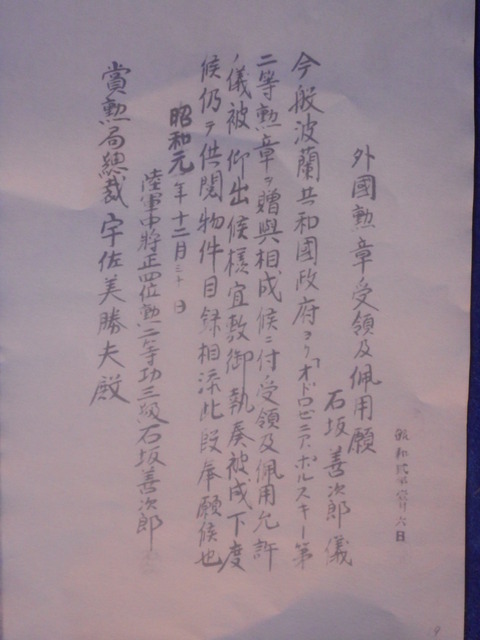 外國勲章受領及佩用願
石坂善次郎儀
今般波蘭共和國政府ヨリ「オドロゼニアポルスキー第
二等勲章ヲ贈與相成候ニ付受領及佩用允許
ノ儀被仰出候樣宜敷御執奏被成下度
候仍テ供閲物件目録相添此段奉願候也
昭和元年十二月三十日
陸軍中將正四位勲二等功三級石坂善次郎
賞勲局總裁宇佐美勝夫殿